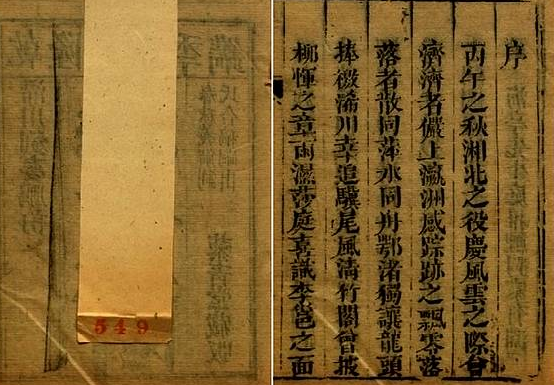 序
丙午之秋湘北之役慶風雲之際會
濟濟者儼上瀛洲感踪跡之飄零落
落者散同萍水同舟鄂渚獨讓龍頭
捧檄浠川幸追驥尾風清竹閣曾披
柳惲之章雨濕莎庭喜識李邕之面
549